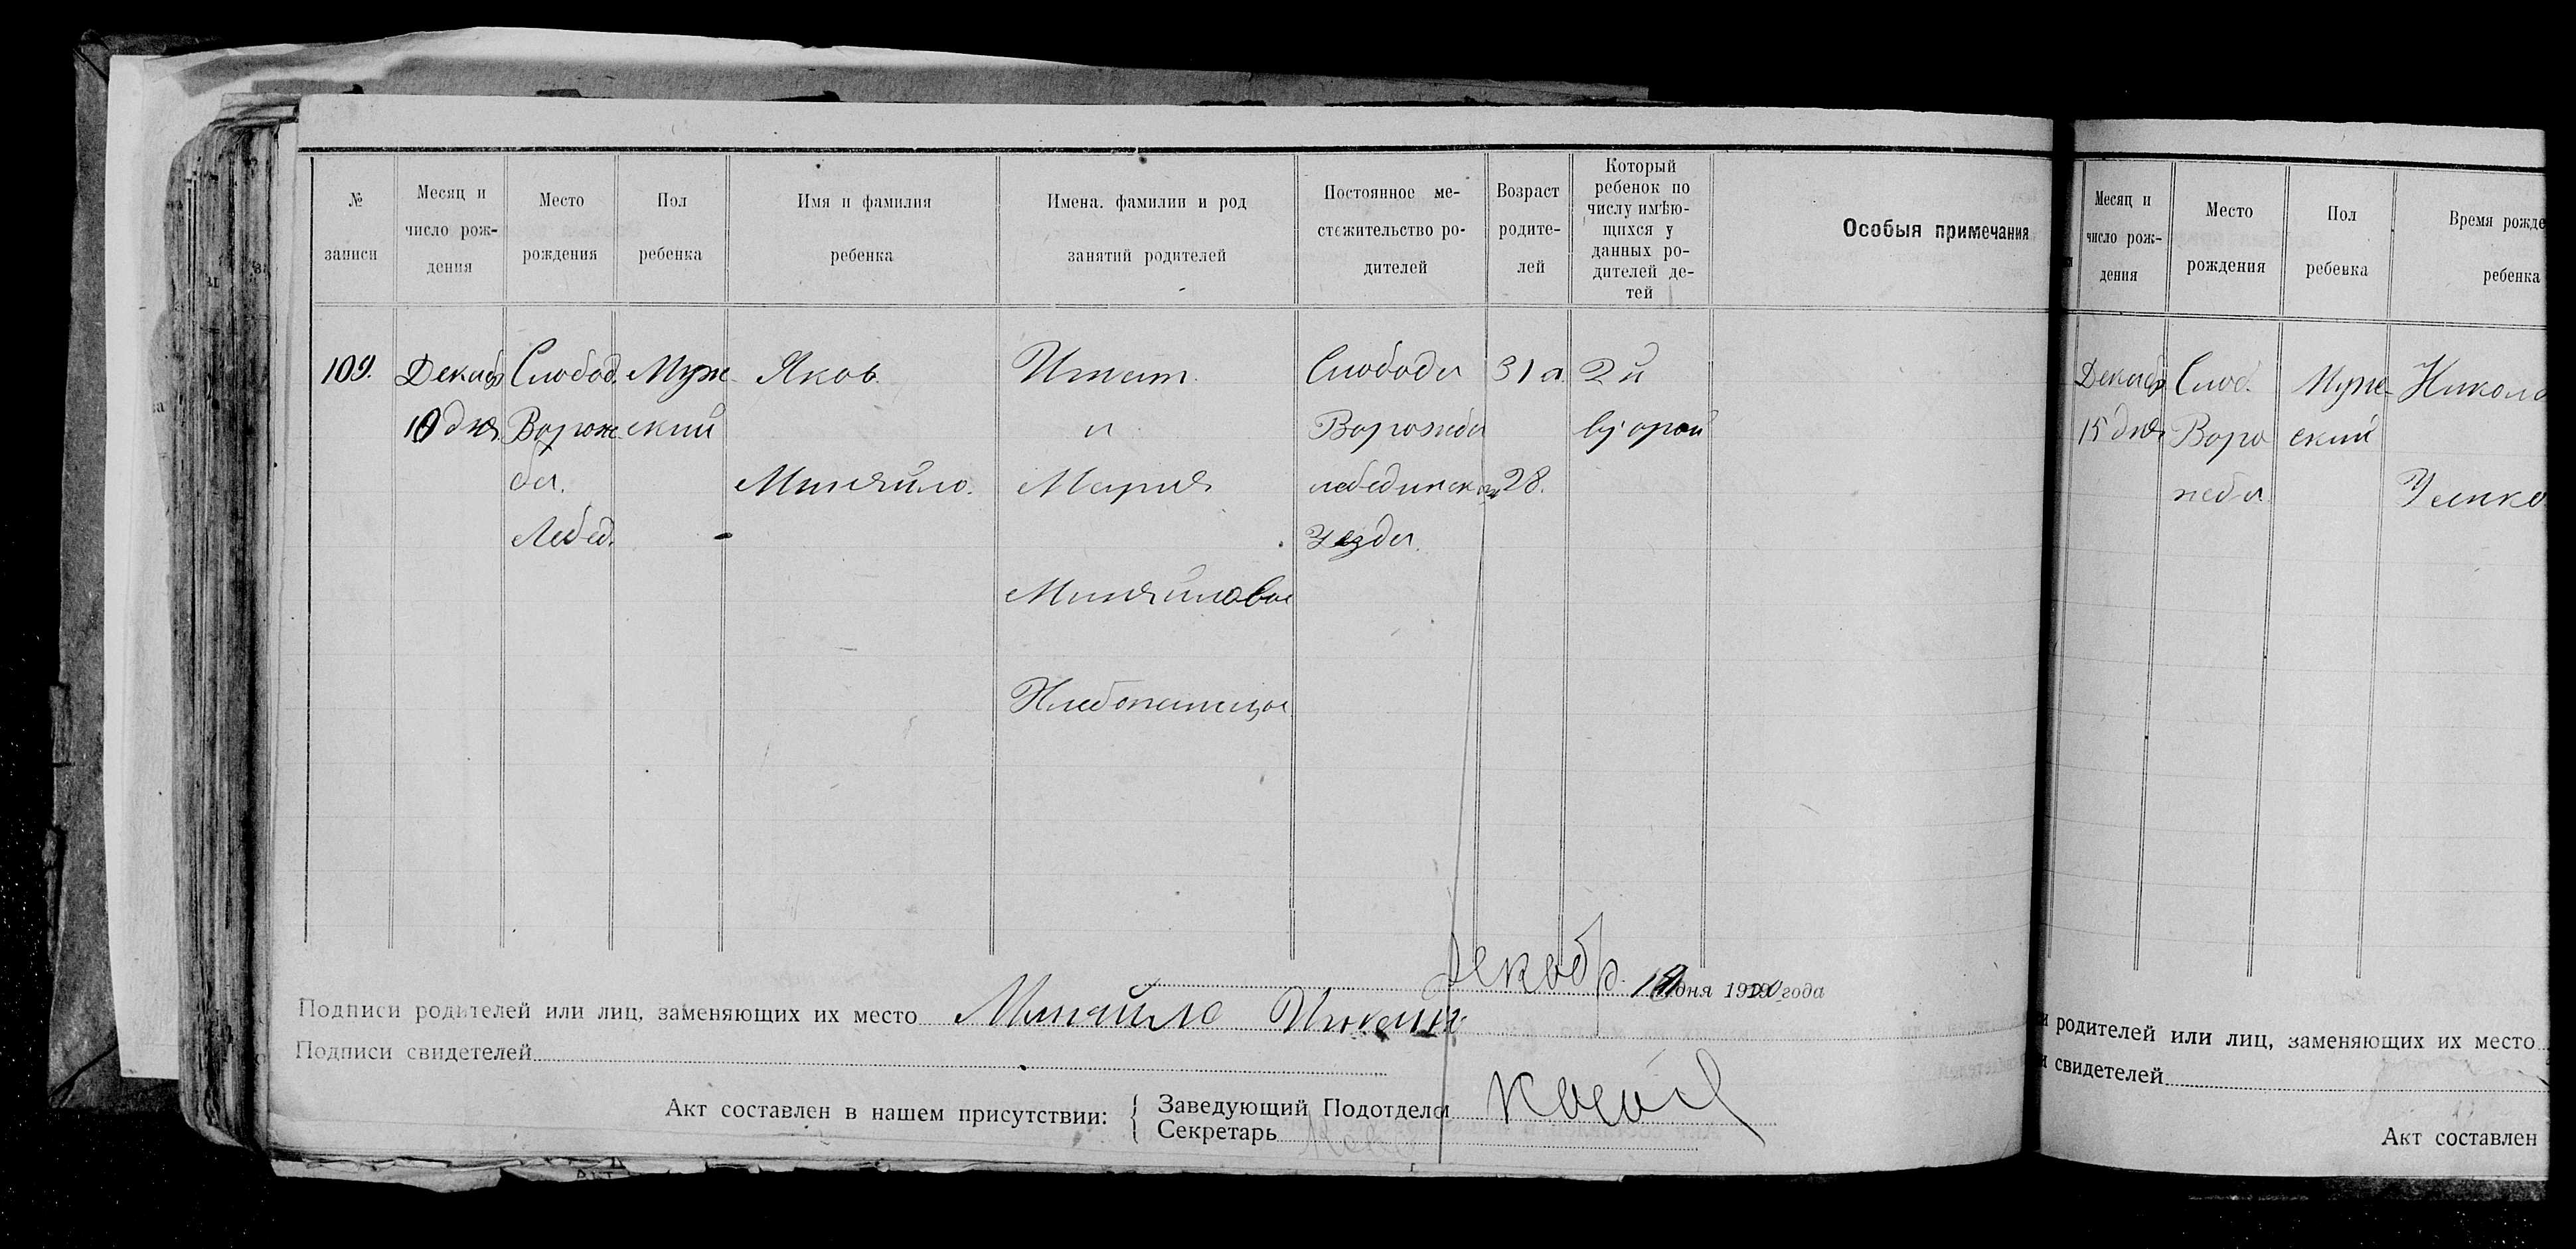 № записи
Месяц и число рождения
Место рождения
Пол ребенка
Имя и фамилия ребенка
Имена. фамилии и род занятий родителей
Постоянное местожительство родителей
Возраст родителей
Который ребенок по числу имѣющихся у данных родителей детей
Особыя примечания
109.
Декабр
10 дня
Слобод.
Ворож
ба.
Лебед.
Муж
ский
Яков
Миняйло.
Игнат
и
Мария
Миняйловы
Хлебопашцы
Слобода
Ворожба
лебединск
Уезда.
31 л
28.
2й
второй
Декабр. 19 дня 1920 года
Подписи родителей или лиц, заменяющих их место Миняйло
Подписи свидетелей
Акт составлен в нашем присутствии:
Заведующий Подотделом
Секретарь
Месяц и число рождения
Место рождения
Пол ребенка
Время рожде
ребенка
Декабр
15 дня
Слоб.
Воро
жба
Муж-
ский
Никола
родителей или лиц, заменяющих их место
свидетелей
Акт составлен